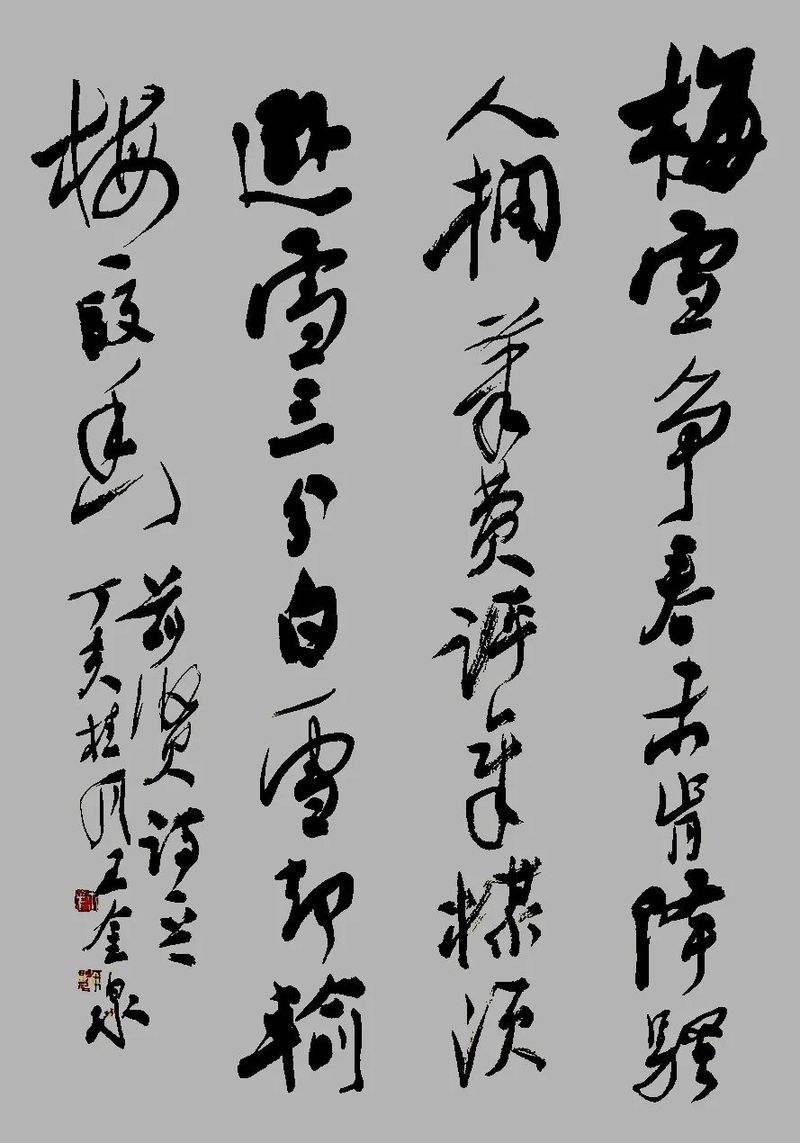 梅雪争春未肯降骚
人搁笔费评章楳须
逊雪三分白雪却输
梅一段香
前贤诗
丁亥桂月王金泉